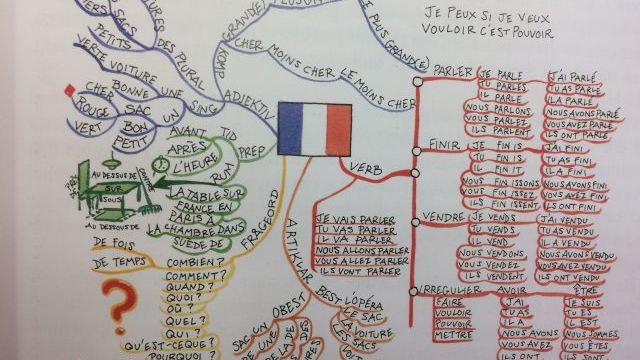 JE PEUX SI JE VEUX
VOULOIR C'EST POUVOIR
LE PLUS GRAND(E)
GRAND(E)
KOMP
CHER
MOINS CHER
LE MOINS CHER
SAC
PETITS
DES
PLURAL
VERTE VOITURE
BONNE
CHER
ROUGE
VERT
SAC
BON
PETIT
UN
SING
ADJEKTIV
AVANT
APRÈS
L'HEURE
TID
RUM
PREP
AU DESSUS DE
SUR
SOUS
AU DESSOUS DE
CONTRE
LA TABLE SUR
FRANCE EN
PARIS À
LA CHAMBRE DANS
SUÈDE DE
FRÅGEORD
DE FOIS
DE TEMPS
COMBIEN?
COMMENT?
QUAND?
QUOI?
OÙ?
QUEL?
QUI?
QU'EST-CEQUE?
POURQUOI?
?
ARTIKLAR
OBEST
SAC UN
UNE
DE LA
DES
BEST
L'OPÉRA
LE SAC
LA VOITURE
LES SACS
VERB
JE VAIS PARLER
TU VAS PARLER
IL VA PARLER
NOUS ALLONS PARLER
VOUS ALLEZ PARLER
ILS VONT PARLER
PARLER
JE PARLE
TU PARLES
IL PARLE
NOUS PARLONS
VOUS PARLEZ
ILS PARLENT
J'AI PARLÉ
TU AS PARLÉ
IL A PARLÉ
NOUS AVONS PARLÉ
VOUS AVEZ PARLÉ
ILS ONT PARLÉ
FINIR
JE FIN IS
TU FIN IS
IL FIN IT
NOUS FIN ISSONS
VOUS FIN ISSEZ
ILS FIN ISSENT
J'AI FINI
TU AS FINI
IL A FINI
NOUS AVONS FINI
VOUS AVEZ FINI
ILS ONT FINI
VENDRE
JE VENDS
TU VENDS
IL VEND
NOUS VENDONS
VOUS VENDEZ
ILS VENDENT
J'AI VENDU
TU AS VENDU
IL A VENDU
NOUS AVONS VENDU
VOUS AVEZ VENDU
ILS ONT VENDU
IRREGULIER
FAIRE
VOULOIR
POUVOIR
METTRE
AVOIR
J'AI
TU AS
IL A
NOUS AVONS
VOUS AVEZ
ILS ONT
ÊTRE
JE SUIS
TU ES
IL EST
NOUS SOMMES
VOUS ÊTES
ILS SONT